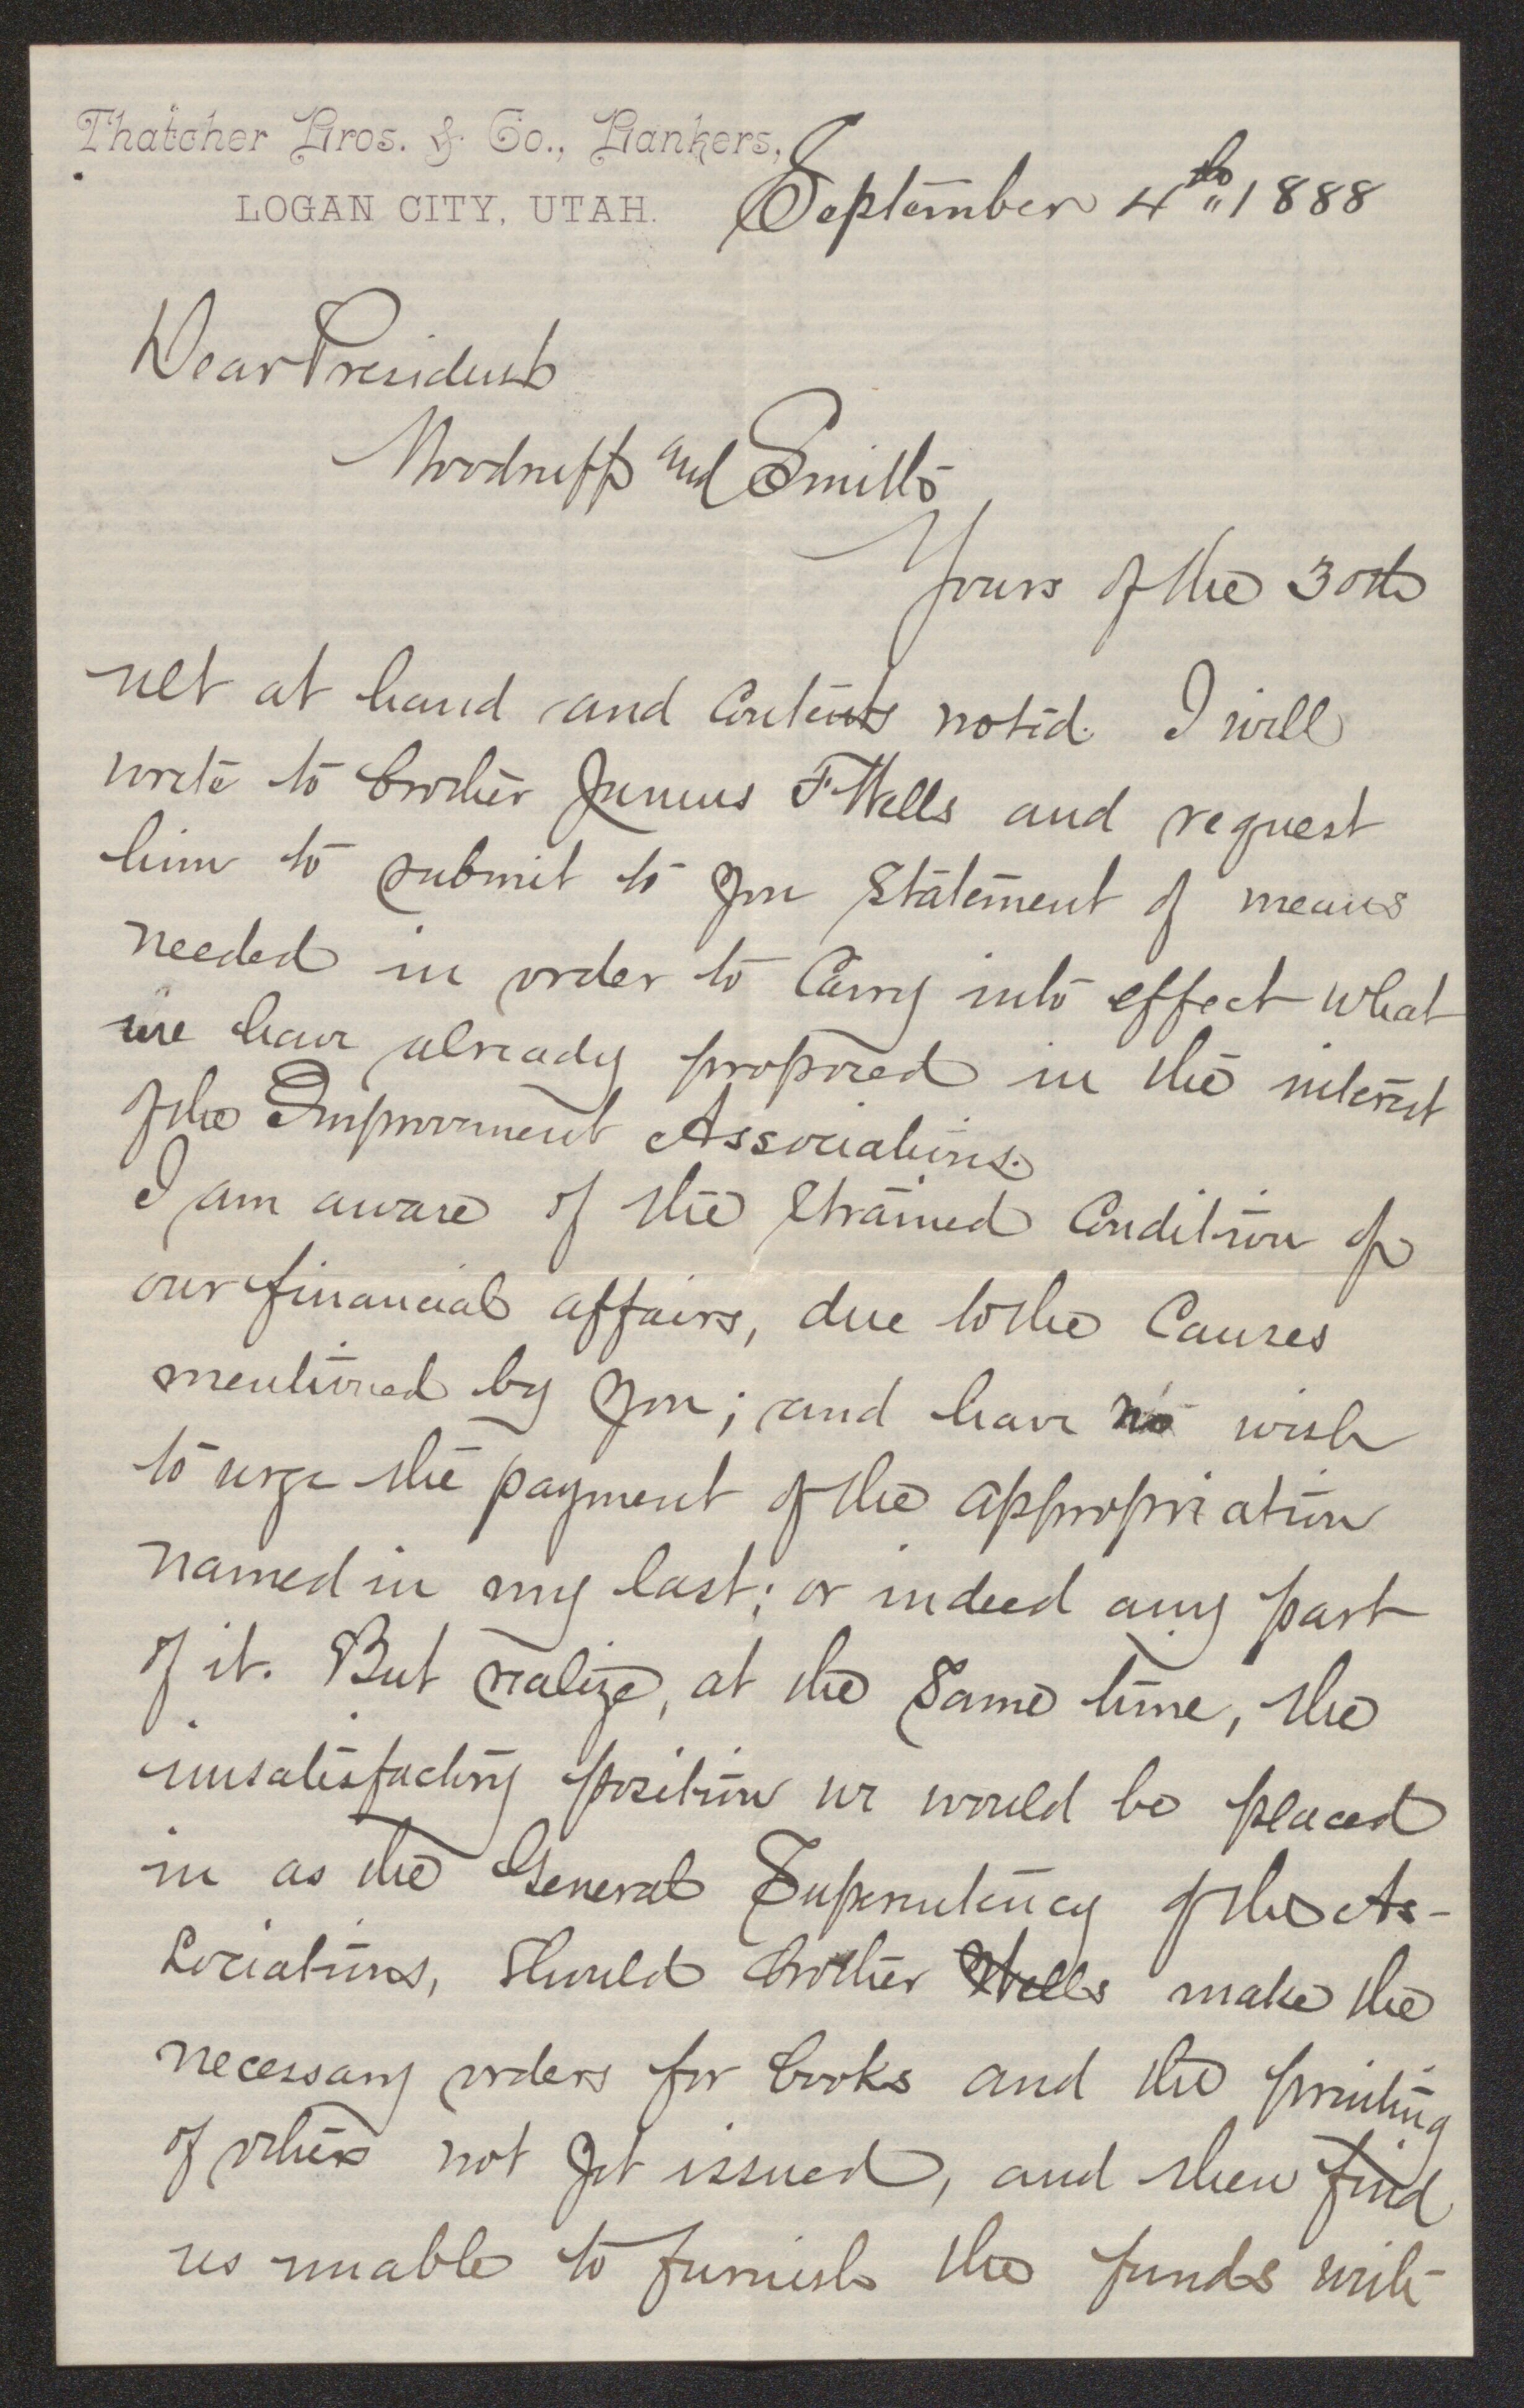 Thatcher Bros. & Co., Bankers,
LOGAN CITY, UTAH.
September 4th 1888
Dear President
Woodruff and Smith
Yours of the 30th
ult at hand and contents noted. I will
write to brother Junius F Wells and request
him to submit to you statement of means
needed in order to carry into effect what
we have already proposed in the interest
of the Improvement Associations.
I am aware of the strained condition of
our financial affairs, due to the causes
mentioned by you; and have no wish
to urge the payment of the appropriation
named in my last; or indeed any part
of it. But realize, at the same time, the
unsatisfactory position we would be placed
in as the General Superintency of the As-
sociations, should brother Wells make the
necessary orders for books and the printing
of others not yet issued, and then find
us unable to furnish the funds with